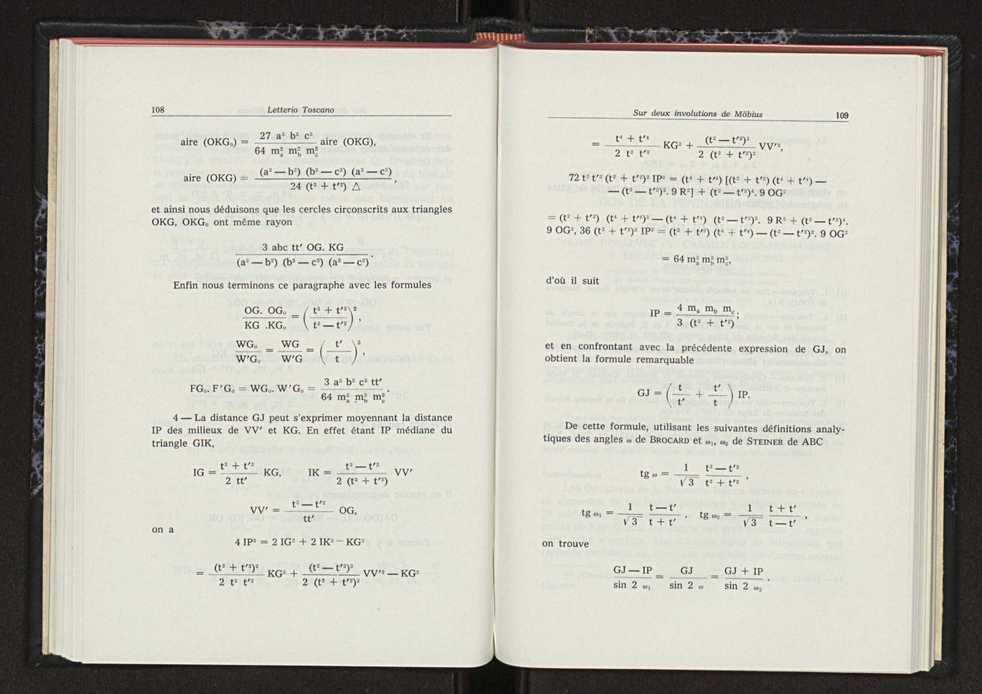 108 Letterio Toscano
aire (OKG₀) = 27 a² b² c² / 64 m²ₐ m²_b m²_c aire (OKG),
aire (OKG) = (a² — b²) (b² — c²) (a² — c²) / 24 (t² + t′²) △ ,
et ainsi nous déduisons que les cercles circonscrits aux triangles
OKG, OKG₀ ont même rayon
3 abc tt′ OG. KG / (a² — b²) (b² — c²) (a² — c²) .
Enfin nous terminons ce paragraphe avec les formules
OG. OG₀ / KG .KG₀ = ( t² + t′² / t² — t′² )² ,
WG₀ / W′G₀ = WG / W′G = ( t′ / t )² ,
FG₀. F′G₀ = WG₀. W′G₀ = 3 a² b² c² tt′ / 64 m²ₐ m²_b m²_c .
4 — La distance GJ peut s'exprimer moyennant la distance
IP des milieux de VV′ et KG. En effet étant IP médiane du
triangle GIK,
IG = t² + t′² / 2 tt′ KG, IK = t² — t′² / 2 (t² + t′²) VV′
VV′ = t² — t′² / tt′ OG,
on a
4 IP² = 2 IG² + 2 IK² — KG²
= (t² + t′²)² / 2 t² t′² KG² + (t² — t′²)² / 2 (t² + t′²)² VV′² — KG²
Sur deux involutions de Möbius 109
= t⁴ + t′⁴ / 2 t² t′² KG² + (t² — t′²)² / 2 (t² + t′²)² VV′²,
72 t² t′² (t² + t′²)² IP² = (t⁴ + t′⁴) [(t² + t′²) (t⁴ + t′⁴) —
— (t² — t′²)². 9 R²] + (t² — t′²)⁴. 9 OG²
= (t² + t′²) (t⁴ + t′⁴)² — (t⁴ + t′⁴) (t² — t′²)². 9 R² + (t² — t′²)⁴.
9 OG², 36 (t² + t′²)² IP² = (t² + t′²) (t⁴ + t′⁴) — (t² — t′²)². 9 OG²
= 64 m²ₐ m²_b m²_c,
d'où il suit
IP = 4 mₐ m_b m_c / 3 (t² + t′²) ;
et en confrontant avec la précédente expression de GJ, on
obtient la formule remarquable
GJ = ( t / t′ + t′ / t ) IP.
De cette formule, utilisant les suivantes définitions analy-
tiques des angles ω de BROCARD et ω₁, ω₂ de STEINER de ABC
tg ω = 1 / √3 t² — t′² / t² + t′² ,
tg ω₁ = 1 / √3 t — t′ / t + t′ , tg ω₂ = 1 / √3 t + t′ / t — t′ ,
on trouve
GJ — IP / sin 2 ω₁ = GJ / sin 2 ω = GJ + IP / sin 2 ω₂ .